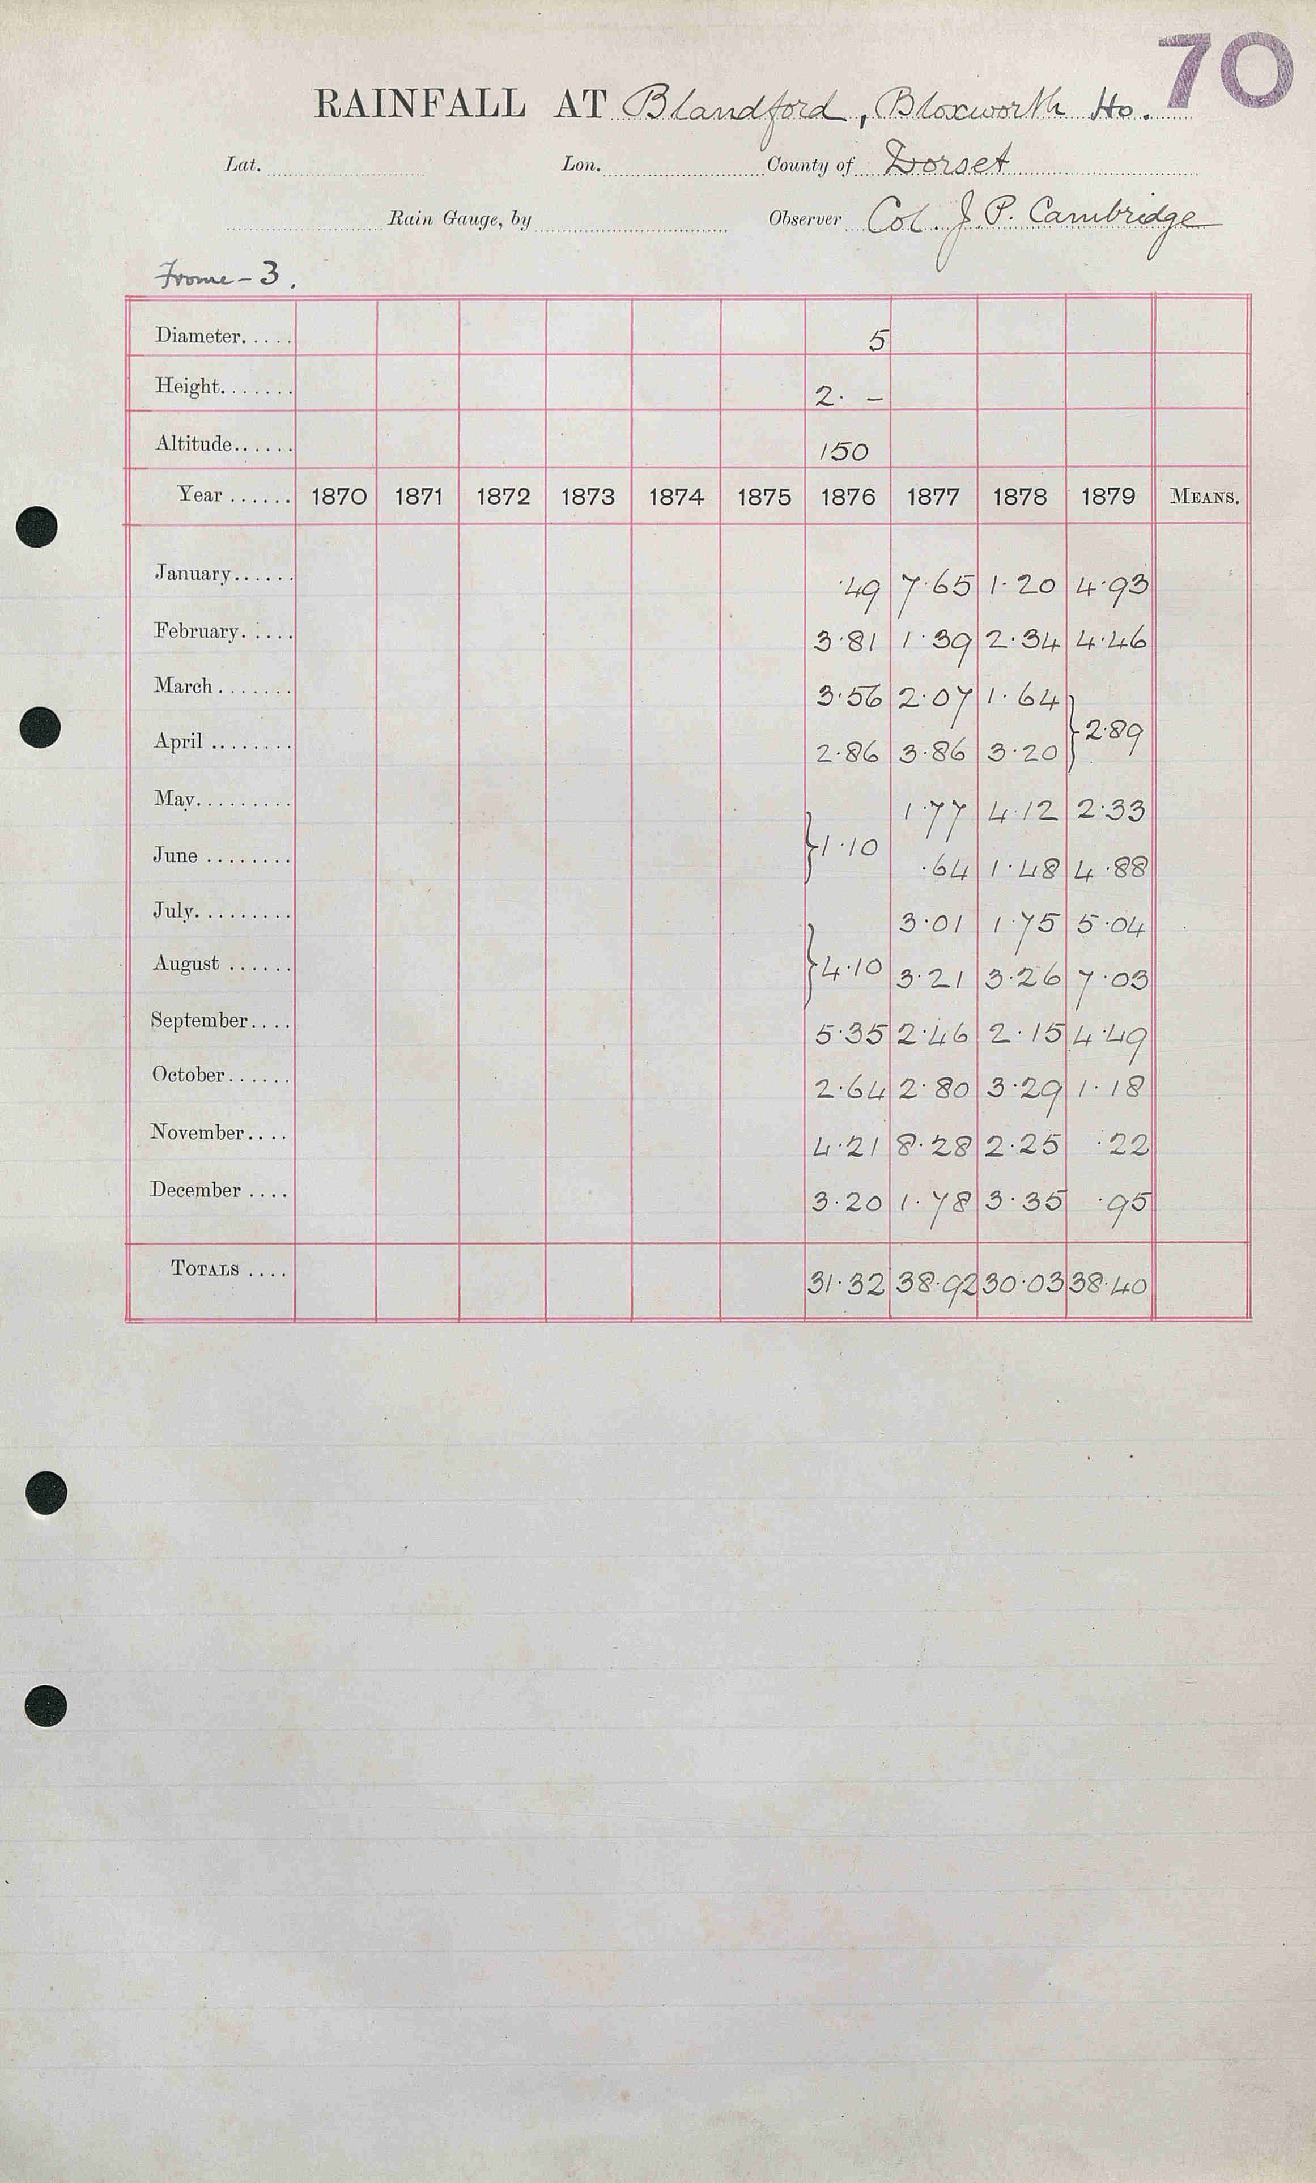 70
RAINFALL AT Blandford, Bloxworth Ho.
Lat. Lon. County of Dorset
Rain Gauge, by Observer Col. J. P. Cambridge
Frome - 3.
Diameter..... 5
Height....... 2. -
Altitude...... 150
Year ...... 1870 1871 1872 1873 1874 1875 1876 1877 1878 1879 MEANS.
January...... ·49 7·65 1·20 4·93
February..... 3·81 1·39 2·34 4·46
March ....... 3·56 2·07 1·64
} 2·89
April ........ 2·86 3·86 3·20
May......... 1·77 4·12 2·33
} 1·10
June ........ ·64 1·48 4·88
July......... 3·01 1·75 5·04
August ...... } 4·10 3·21 3·26 7·03
September.... 5·35 2·46 2·15 4·49
October...... 2·64 2·80 3·29 1·18
November.... 4·21 8·28 2·25 ·22
December .... 3·20 1·78 3·35 ·95
TOTALS .... 31·32 38·92 30·03 38·40